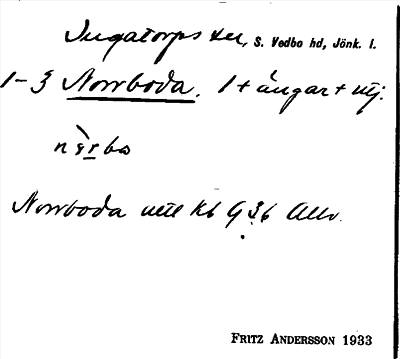 Ingatorps sn, S. Vedbo hd, Jönk. l.
1-3 Norrboda. 1 + ängar + utj.
Norrboda utj Kb G 36 Allv.
FRITZ ANDERSSON 1933